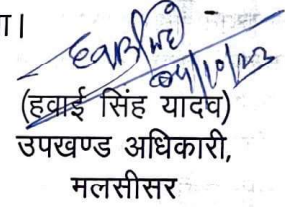 ा।
04/10/23
(हवाई सिंह यादव)
उपखण्ड अधिकारी,
मलसीसर